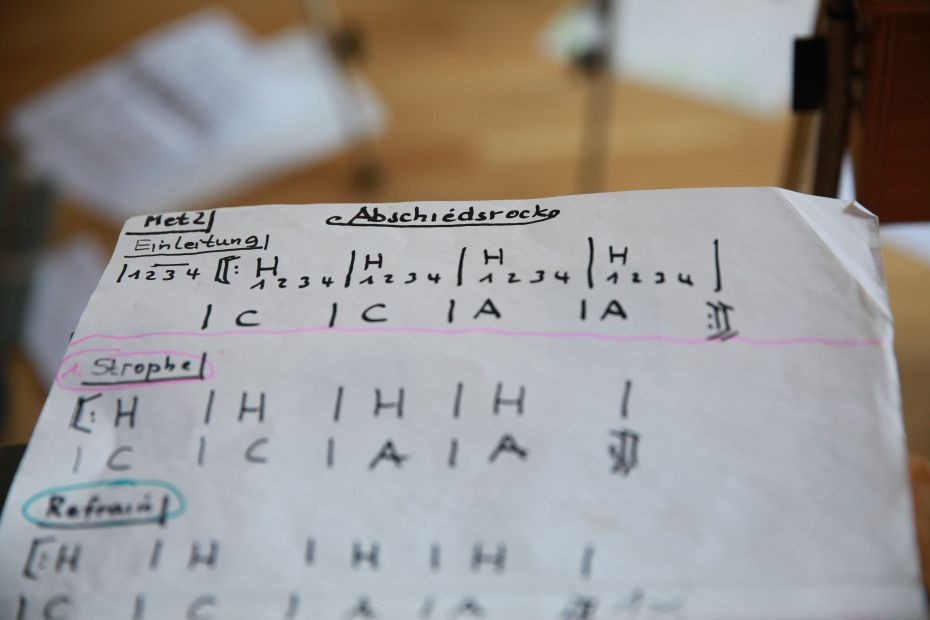 Metzl Abschiedsrock
Einleitung
| 1 2 3 4 [: H 1 2 3 4 | H 1 2 3 4 | H 1 2 3 4 | H 1 2 3 4 |
| C | C | A | A :]
1. Strophe
[: H | H | H | H |
| C | C | A | A :]
Refrain
[: H | H | H | H |
| C | C | A | A